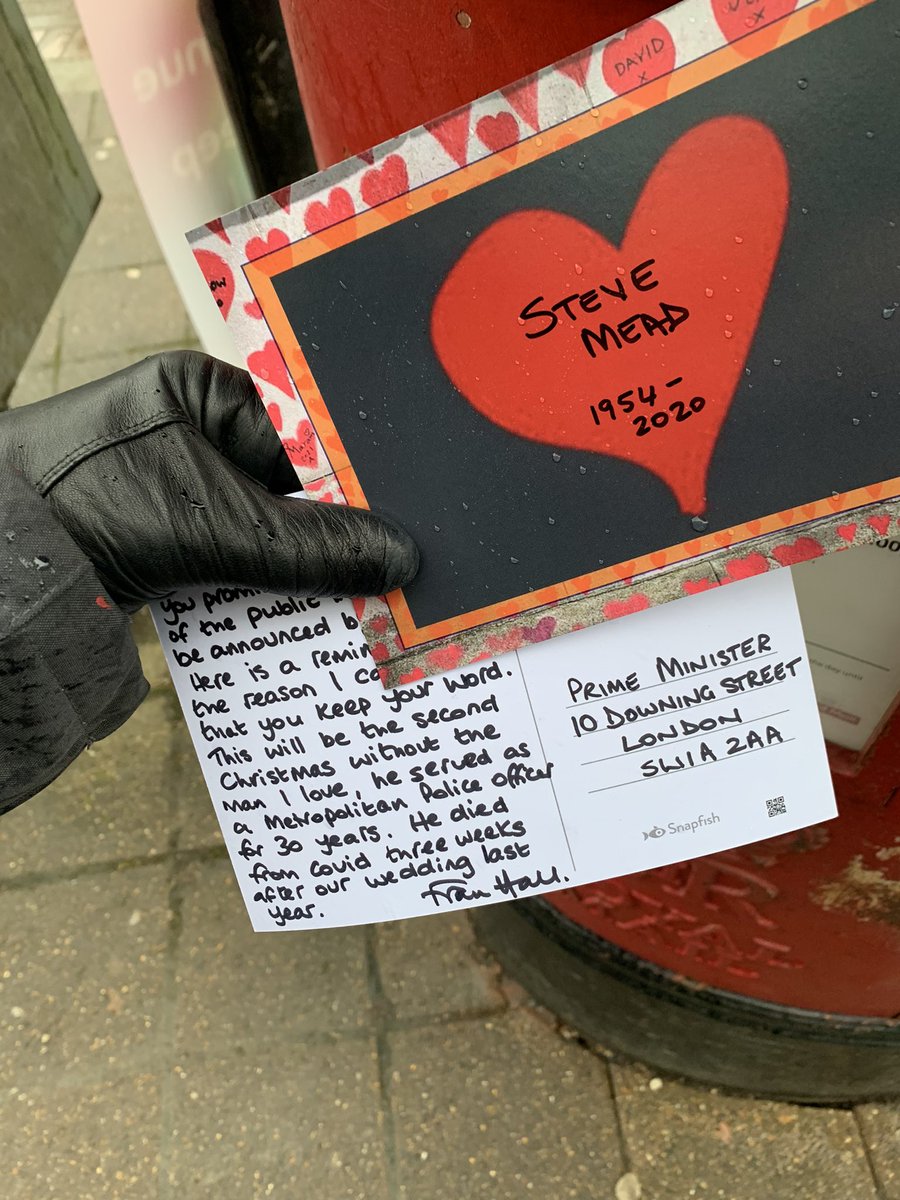 DAVID
x
x
STEVE
MEAD
1954-
2020
2021
you promi
of the public
be announced b
Here is a remin
the reason I co
that you keep your word.
This will be the second
Christmas without the
man I love, he served as
a Metropolitan Police Officer
for 30 years. He died
from covid three weeks
after our wedding last
year.
Fran Hall.
PRIME MINISTER
10 DOWNING STREET
LONDON
SW1A 2AA
Snapfish